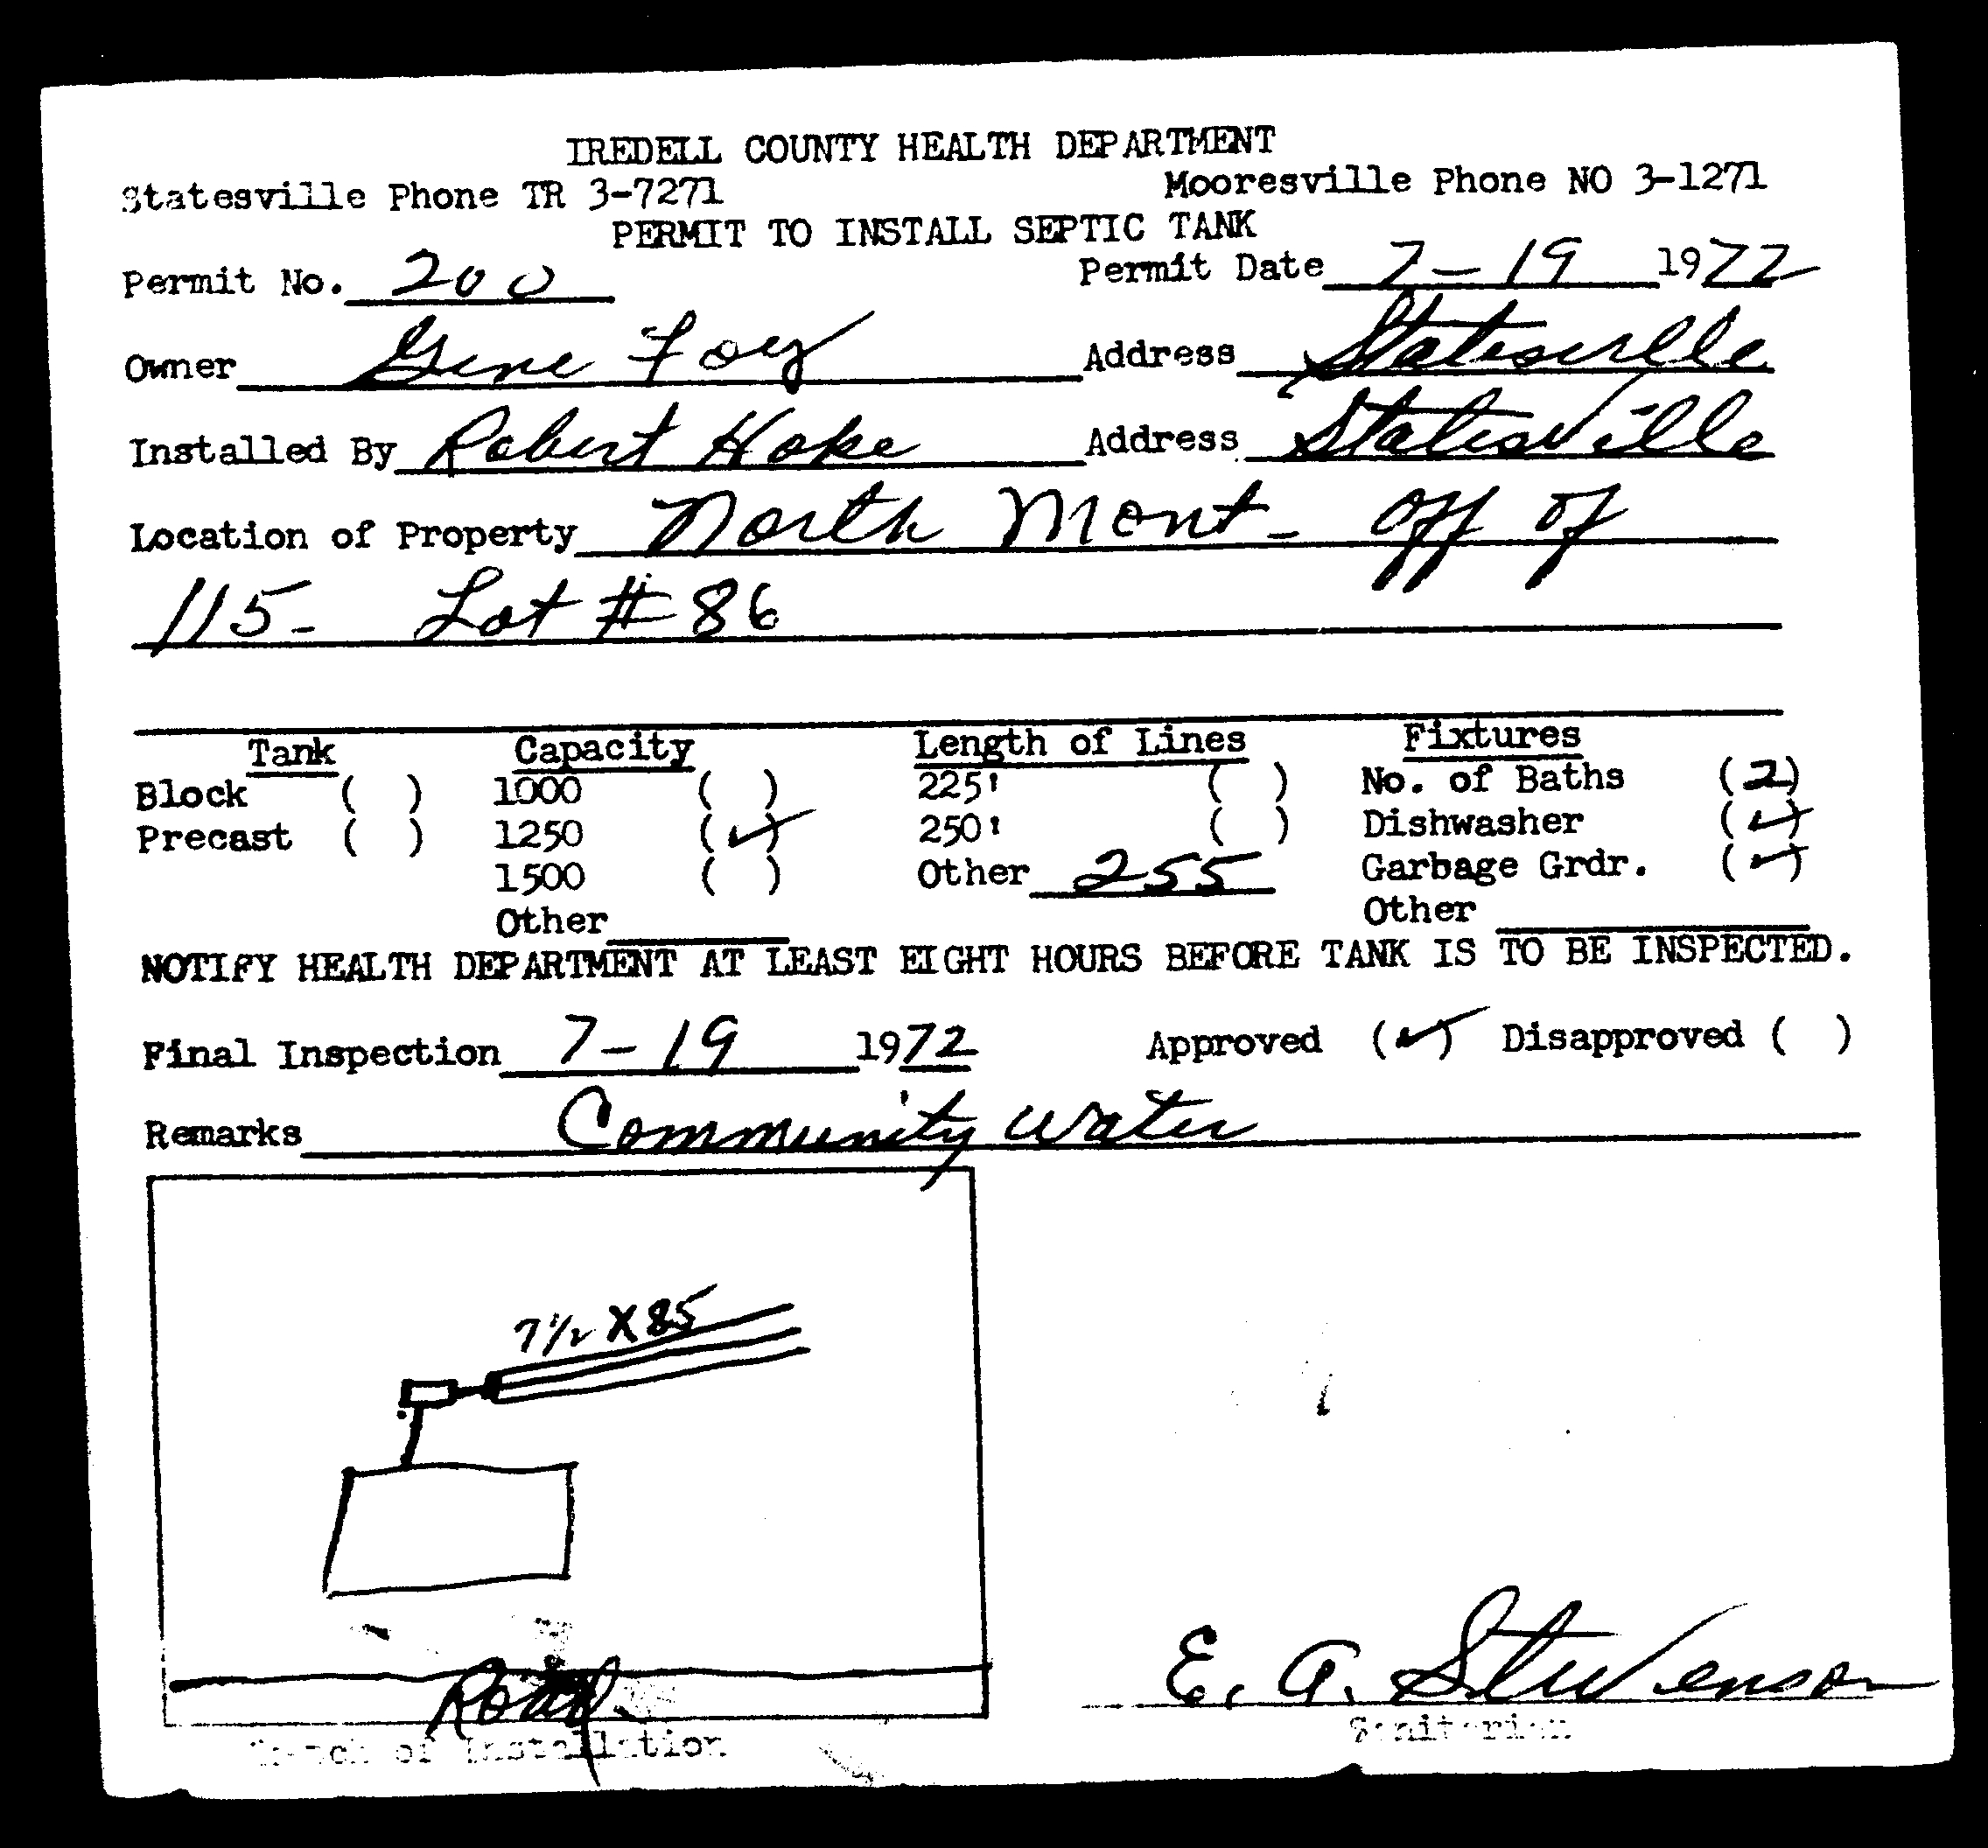 IREDELL COUNTY HEALTH DEPARTMENT
Statesville Phone TR 3-7271 Mooresville Phone NO 3-1271
PERMIT TO INSTALL SEPTIC TANK
Permit No. 200 Permit Date 7-19 1972
Owner Gene Foy Address Statesville
Installed By Robert Hoke Address Statesville
Location of Property North Mont- off of
115- Lot # 86
Tank Capacity Length of Lines Fixtures
Block ( ) 1000 ( ) 225' ( ) No. of Baths (2)
Precast ( ) 1250 (✓) 250' ( ) Dishwasher (✓)
1500 ( ) Other 255 Garbage Grdr. (✓)
Other Other
NOTIFY HEALTH DEPARTMENT AT LEAST EIGHT HOURS BEFORE TANK IS TO BE INSPECTED.
Final Inspection 7-19 1972 Approved (✓) Disapproved ( )
Remarks Community water
7 1/2 X 85
Road
E. A. Stevenson
of Installation Sanitarian